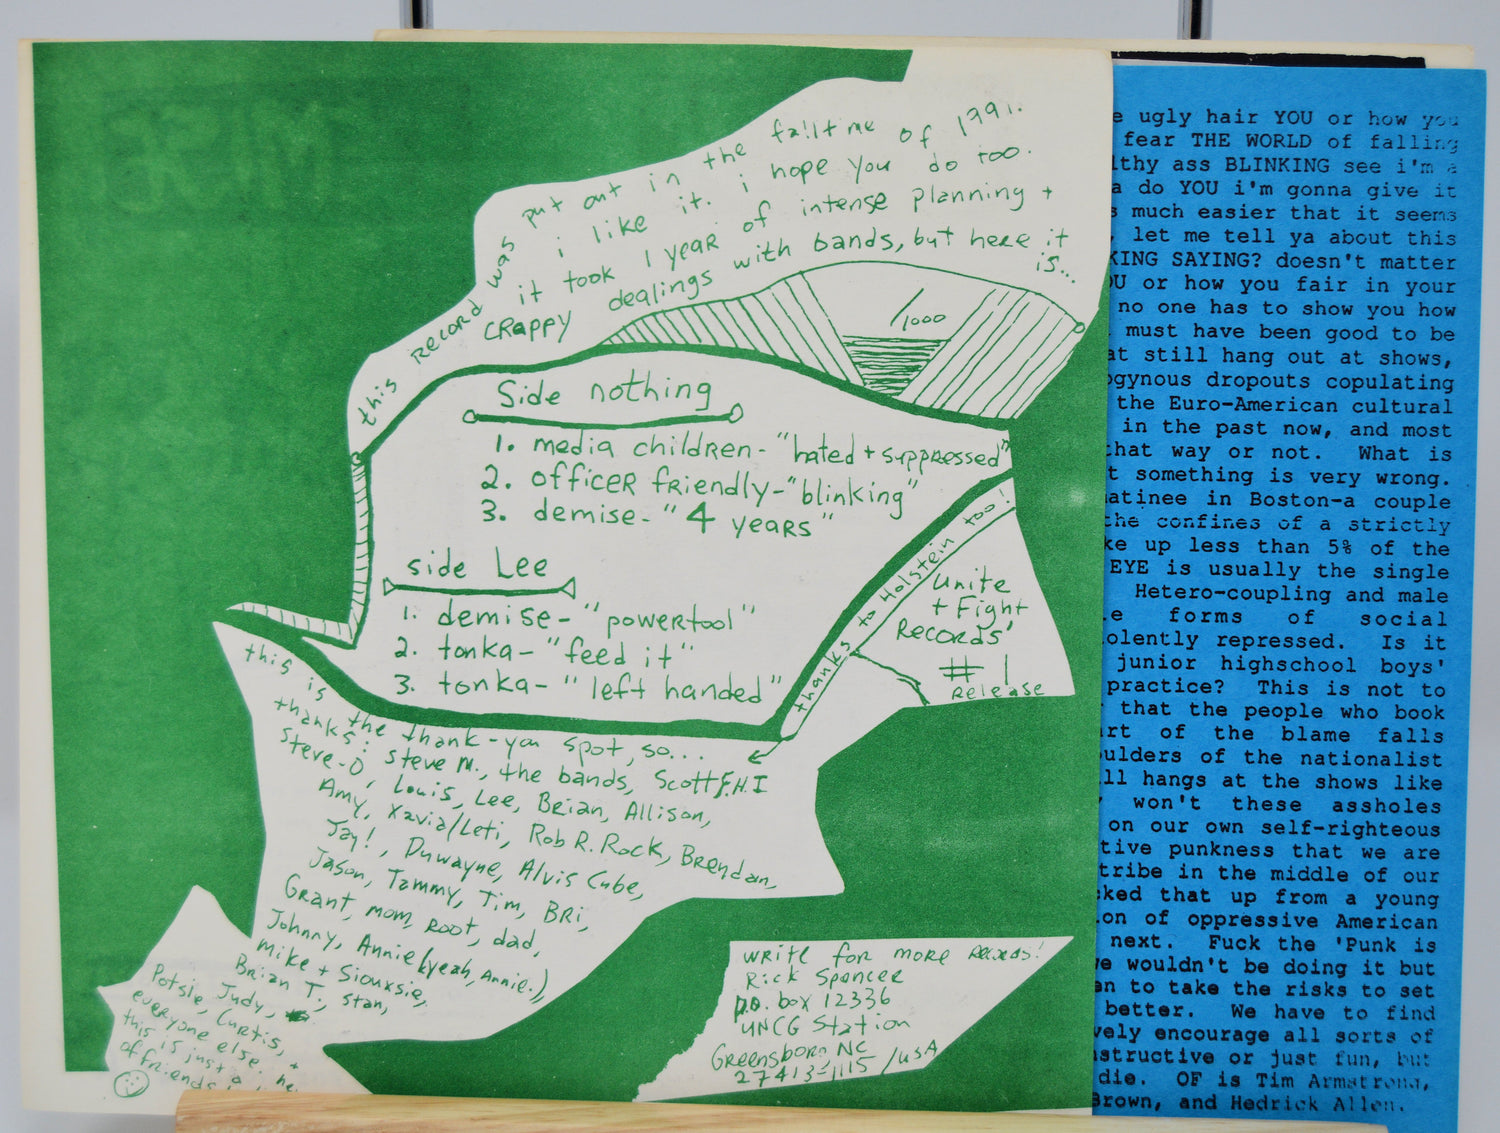 this record was put out in the falltime of 1991.
i like it. i hope you do too.
it took 1 year of intense planning +
crappy dealings with bands, but here it
is...
/1000
Side nothing
1. media children- "hated + suppressed"
2. officer friendly- "blinking"
3. demise- "4 years"
side Lee
1. demise- "powertool"
2. tonka- "feed it"
3. tonka- "left handed"
thanks to Holstein too!
Unite
+ Fight
Records'
# 1
Release
this is the thank-you spot, so...
thanks: Steve M., the bands, Scott F.H.I
Steve-O, Louis, Lee, Brian, Allison,
Amy, Xavia/Leti, Rob R. Rock, Brendan,
Jay!, Duwayne, Alvis Cube,
Jason, Tammy, Tim, BRi,
Grant, mom, root, dad,
Johnny, Annie (yeah, Annie.),
Mike + Siouxsie,
Brian T., Stan,
Potsie, Judy,
Curtis, +
everyone else. he
this is just a
of friends
write for more records!
Rick Spencer
p.o. box 12336
UNCG Station
Greensboro NC
27413-1115 /USA
e ugly hair YOU or how you
fear THE WORLD of falling
lthy ass BLINKING see i'm a
a do YOU i'm gonna give it
s much easier that it seems
, let me tell ya about this
KING SAYING? doesn't matter
OU or how you fair in your
no one has to show you how
must have been good to be
at still hang out at shows,
ogynous dropouts copulating
the Euro-American cultural
in the past now, and most
that way or not. What is
t something is very wrong.
atinee in Boston-a couple
the confines of a strictly
ke up less than 5% of the
EYE is usually the single
Hetero-coupling and male
e forms of social
olently repressed. Is it
junior highschool boys'
practice? This is not to
that the people who book
art of the blame falls
oulders of the nationalist
ll hangs at the shows like
won't these assholes
on our own self-righteous
tive punkness that we are
tribe in the middle of our
cked that up from a young
ion of oppressive American
next. Fuck the 'Punk is
we wouldn't be doing it but
en to take the risks to set
better. We have to find
vely encourage all sorts of
nstructive or just fun, but
die. OF is Tim Armstrong,
Brown, and Hedrick Allen.